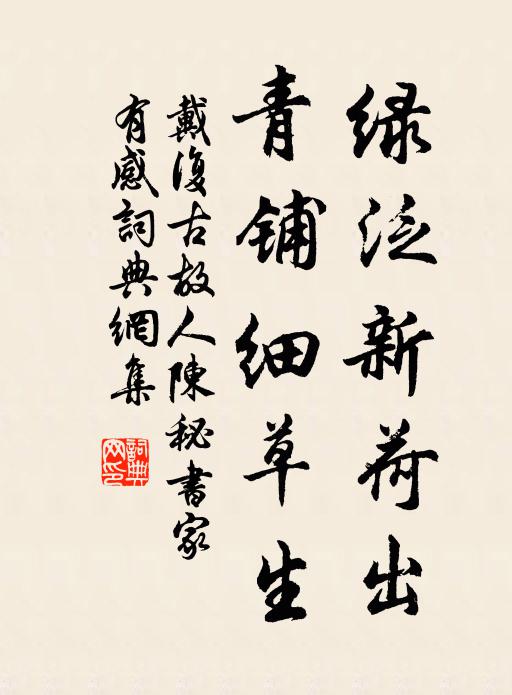 绿泛新荷出
青铺细草生
戴復古故人陳秘書家
有感詞典網集
詞典网印